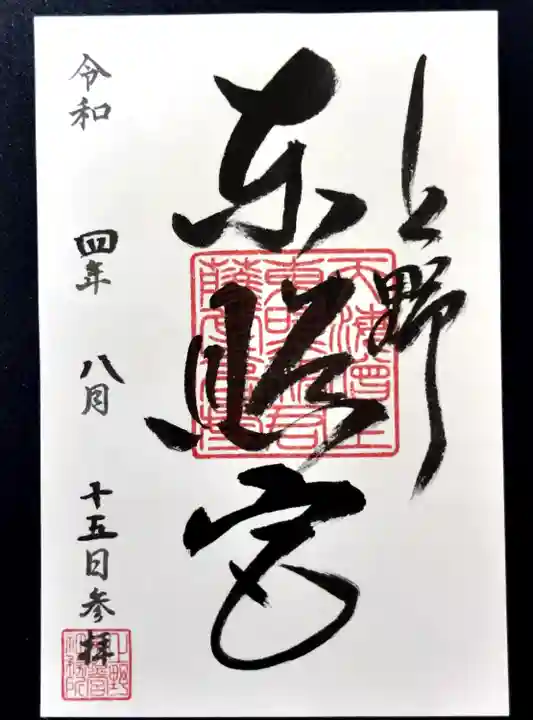 上野
東照宮
令和 四年 八月 十五日参拝